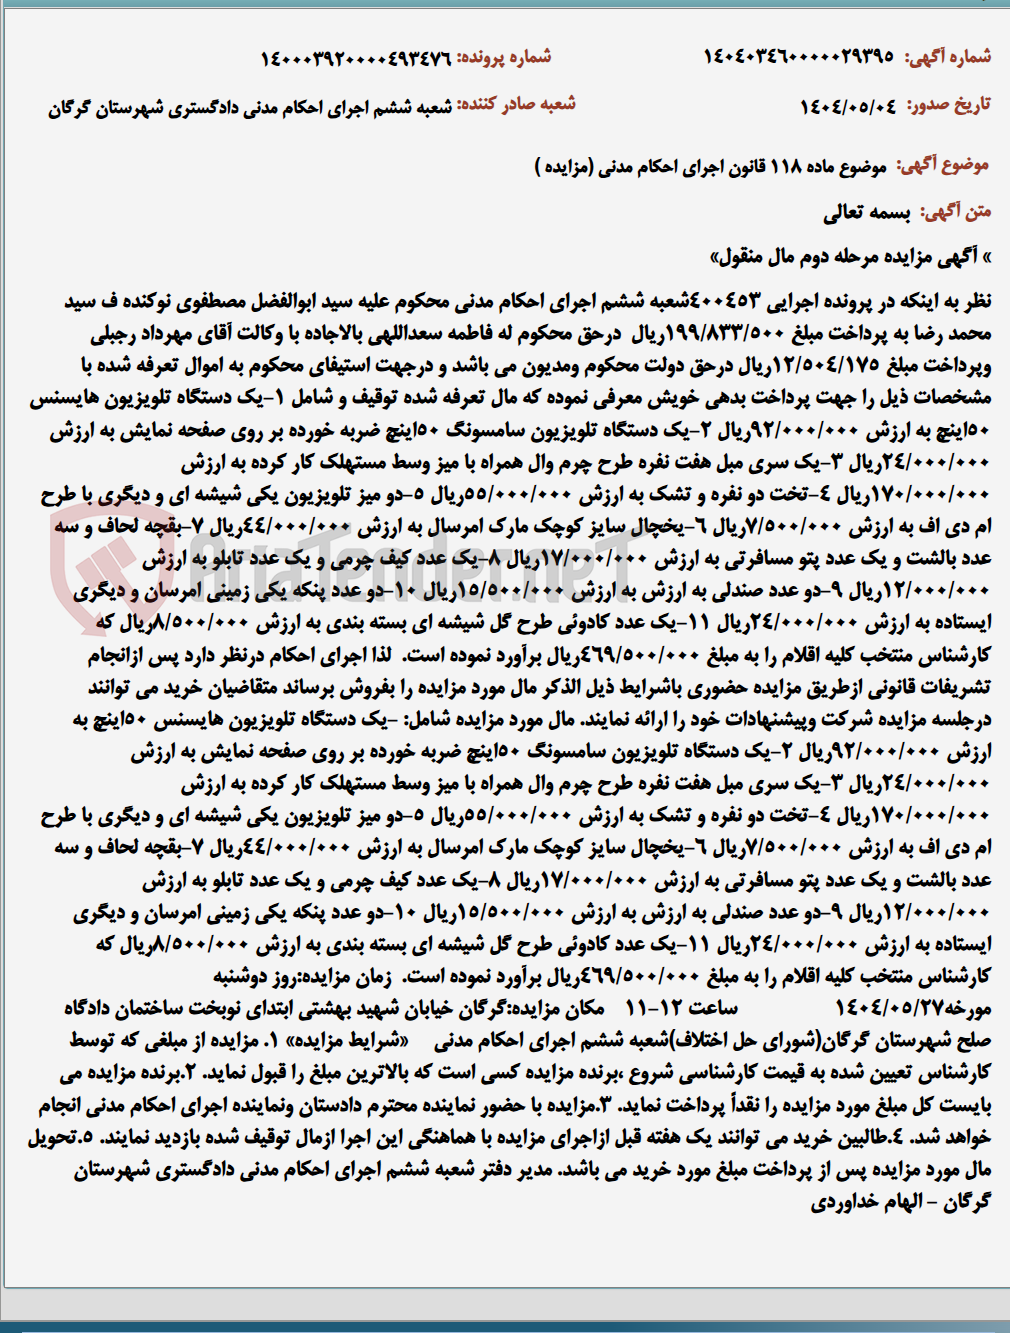 شماره آگهی: ۱۴۰۴۰۳۴۶۰۰۰۰۰۲۹۳۹۵ شماره پرونده: ۱۴۰۰۰۳۹۲۰۰۰۰۴۹۳۴۷۶
تاریخ صدور: ۱۴۰۴/۰۵/۰۴ شعبه صادر کننده: شعبه ششم اجرای احکام مدنی دادگستری شهرستان گرگان
موضوع آگهی: موضوع ماده ۱۱۸ قانون اجرای احکام مدنی (مزایده )
متن آگهی: بسمه تعالی
» آگهی مزایده مرحله دوم مال منقول»
نظر به اینکه در پرونده اجرایی ۴۰۰۴۵۳شعبه ششم اجرای احکام مدنی محکوم علیه سید ابوالفضل مصطفوی نوکنده ف سید
محمد رضا به پرداخت مبلغ ۱۹۹/۸۳۳/۵۰۰ریال درحق محکوم له فاطمه سعداللهی بالاجاده با وکالت آقای مهرداد رجبلی
وپرداخت مبلغ ۱۲/۵۰۴/۱۷۵ریال درحق دولت محکوم ومدیون می باشد و درجهت استیفای محکوم به اموال تعرفه شده با
مشخصات ذیل را جهت پرداخت بدهی خویش معرفی نموده که مال تعرفه شده توقیف و شامل ۱-یک دستگاه تلویزیون هایسنس
۵۰اینچ به ارزش ۹۲/۰۰۰/۰۰۰ریال ۲-یک دستگاه تلویزیون سامسونگ ۵۰اینچ ضربه خورده بر روی صفحه نمایش به ارزش
۲۴/۰۰۰/۰۰۰ریال ۳-یک سری مبل هفت نفره طرح چرم وال همراه با میز وسط مستهلک کار کرده به ارزش
۱۷۰/۰۰۰/۰۰۰ریال ۴-تخت دو نفره و تشک به ارزش ۵۵/۰۰۰/۰۰۰ریال ۵-دو میز تلویزیون یکی شیشه ای و دیگری با طرح
ام دی اف به ارزش ۷/۵۰۰/۰۰۰ریال ۶-یخچال سایز کوچک مارک امرسال به ارزش ۴۴/۰۰۰/۰۰۰ریال ۷-بقچه لحاف و سه
عدد بالشت و یک عدد پتو مسافرتی به ارزش ۱۷/۰۰۰/۰۰۰ریال ۸-یک عدد کیف چرمی و یک عدد تابلو به ارزش
۱۲/۰۰۰/۰۰۰ریال ۹-دو عدد صندلی به ارزش به ارزش ۱۵/۵۰۰/۰۰۰ریال ۱۰-دو عدد پنکه یکی زمینی امرسان و دیگری
ایستاده به ارزش ۲۴/۰۰۰/۰۰۰ریال ۱۱-یک عدد کادوئی طرح گل شیشه ای بسته بندی به ارزش ۸/۵۰۰/۰۰۰ریال که
کارشناس منتخب کلیه اقلام را به مبلغ ۴۶۹/۵۰۰/۰۰۰ریال برآورد نموده است. لذا اجرای احکام درنظر دارد پس ازانجام
تشریفات قانونی ازطریق مزایده حضوری باشرایط ذیل الذکر مال مورد مزایده را بفروش برساند متقاضیان خرید می توانند
درجلسه مزایده شرکت وپیشنهادات خود را ارائه نمایند. مال مورد مزایده شامل: -یک دستگاه تلویزیون هایسنس ۵۰اینچ به
ارزش ۹۲/۰۰۰/۰۰۰ریال ۲-یک دستگاه تلویزیون سامسونگ ۵۰اینچ ضربه خورده بر روی صفحه نمایش به ارزش
۲۴/۰۰۰/۰۰۰ریال ۳-یک سری مبل هفت نفره طرح چرم وال همراه با میز وسط مستهلک کار کرده به ارزش
۱۷۰/۰۰۰/۰۰۰ریال ۴-تخت دو نفره و تشک به ارزش ۵۵/۰۰۰/۰۰۰ریال ۵-دو میز تلویزیون یکی شیشه ای و دیگری با طرح
ام دی اف به ارزش ۷/۵۰۰/۰۰۰ریال ۶-یخچال سایز کوچک مارک امرسال به ارزش ۴۴/۰۰۰/۰۰۰ریال ۷-بقچه لحاف و سه
عدد بالشت و یک عدد پتو مسافرتی به ارزش ۱۷/۰۰۰/۰۰۰ریال ۸-یک عدد کیف چرمی و یک عدد تابلو به ارزش
۱۲/۰۰۰/۰۰۰ریال ۹-دو عدد صندلی به ارزش به ارزش ۱۵/۵۰۰/۰۰۰ریال ۱۰-دو عدد پنکه یکی زمینی امرسان و دیگری
ایستاده به ارزش ۲۴/۰۰۰/۰۰۰ریال ۱۱-یک عدد کادوئی طرح گل شیشه ای بسته بندی به ارزش ۸/۵۰۰/۰۰۰ریال که
کارشناس منتخب کلیه اقلام را به مبلغ ۴۶۹/۵۰۰/۰۰۰ریال برآورد نموده است. زمان مزایده:روز دوشنبه
مورخه۱۴۰۴/۰۵/۲۷ ساعت ۱۲-۱۱ مکان مزایده:گرگان خیابان شهید بهشتی ابتدای نوبخت ساختمان دادگاه
صلح شهرستان گرگان(شورای حل اختلاف)شعبه ششم اجرای احکام مدنی «شرایط مزایده» ۱. مزایده از مبلغی که توسط
کارشناس تعیین شده به قیمت کارشناسی شروع ،برنده مزایده کسی است که بالاترین مبلغ را قبول نماید. ۲.برنده مزایده می
بایست کل مبلغ مورد مزایده را نقداً پرداخت نماید. ۳.مزایده با حضور نماینده محترم دادستان ونماینده اجرای احکام مدنی انجام
خواهد شد. ۴.طالبین خرید می توانند یک هفته قبل ازاجرای مزایده با هماهنگی این اجرا ازمال توقیف شده بازدید نمایند. ۵.تحویل
مال مورد مزایده پس از پرداخت مبلغ مورد خرید می باشد. مدیر دفتر شعبه ششم اجرای احکام مدنی دادگستری شهرستان
گرگان - الهام خداوردی
AriaTender.neT